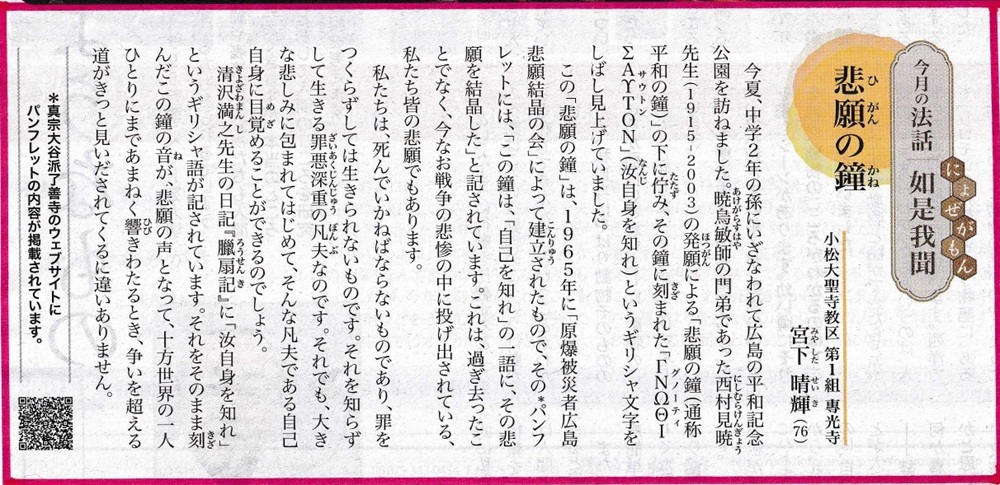 今月の法話
如是我聞
にょぜがもん
悲願の鐘
ひがん かね
小松大聖寺教区 第1組 専光寺
宮下 晴輝(76)
みやした せいき
今夏、中学2年の孫にいざなわれて広島の平和記念
公園を訪ねました。暁烏敏師の門弟であった西村見暁
あけがらすはや にしむらけんぎょう
先生(1915-2003)の発願による「悲願の鐘(通称
ほつがん
平和の鐘)」の下に佇み、その鐘に刻まれた「ΓΝΩΘΙ
たたず きざ グノーティ
ΣΑΥΤΟΝ」(汝自身を知れ)というギリシャ文字を
サウトン なんじ
しばし見上げていました。
この「悲願の鐘」は、1965年に「原爆被災者広島
悲願結晶の会」によって建立されたもので、その*パンフ
こんりゅう
レットには、「この鐘は、「自己を知れ」の一語に、その悲
願を結晶した」と記されています。これは、過ぎ去ったこ
とでなく、今なお戦争の悲惨の中に投げ出されている、
私たち皆の悲願でもあります。
私たちは、死んでいかねばならないものであり、罪を
つくらずしては生きられないものです。それを知らず
して生きる罪悪深重の凡夫なのです。それでも、大き
ざいあくじんじゅう ぼんぶ
な悲しみに包まれてはじめて、そんな凡夫である自己
自身に目覚めることができるのでしょう。
めざ
清沢満之先生の日記『臘扇記』に「汝自身を知れ」
きよざわまんし ろうせんき
というギリシャ語が記されています。それをそのまま刻
きざ
んだこの鐘の音が、悲願の声となって、十方世界の一人
ね
ひとりにまであまねく響きわたるとき、争いを超える
ひび
道がきっと見いだされてくるに違いありません。
*真宗大谷派了善寺のウェブサイトに
パンフレットの内容が掲載されています。